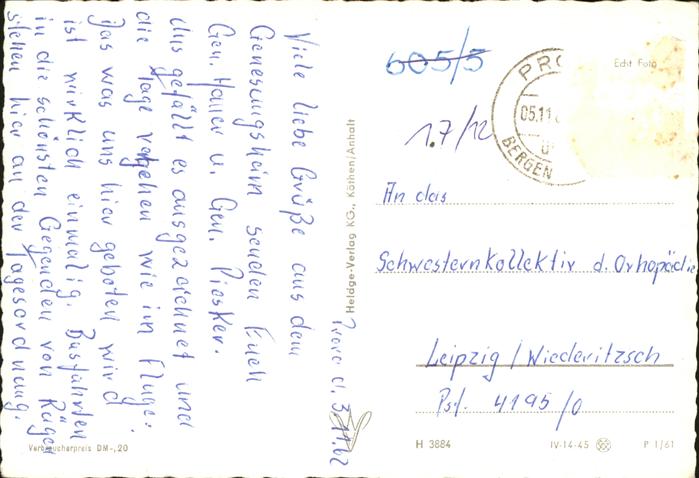 Prora d. 3.11.62
Viele liebe Grüße aus dem
Genesungsheim senden Euch
Gen. u. Gen.
Uns gefällt es ausgezeichnet und
die Tage vergehen wie im Fluge.
Das was uns hier geboten wird
ist wirklich einmalig. Busfahrten
in die schönsten Gegenden von Rügen
stehen hier an der Tagesordnung.
Verbraucherpreis DM -,20
Heldge-Verlag KG., Köthen/Anhalt
605/5
1.7/12
Edit Foto
PRO
05.11
BERGEN
An das
Schwesternkollektiv d. Orthopädie
Leipzig / Wiederitzsch
Psf. 4195/0
H 3884
IV-14-45
P 1/61